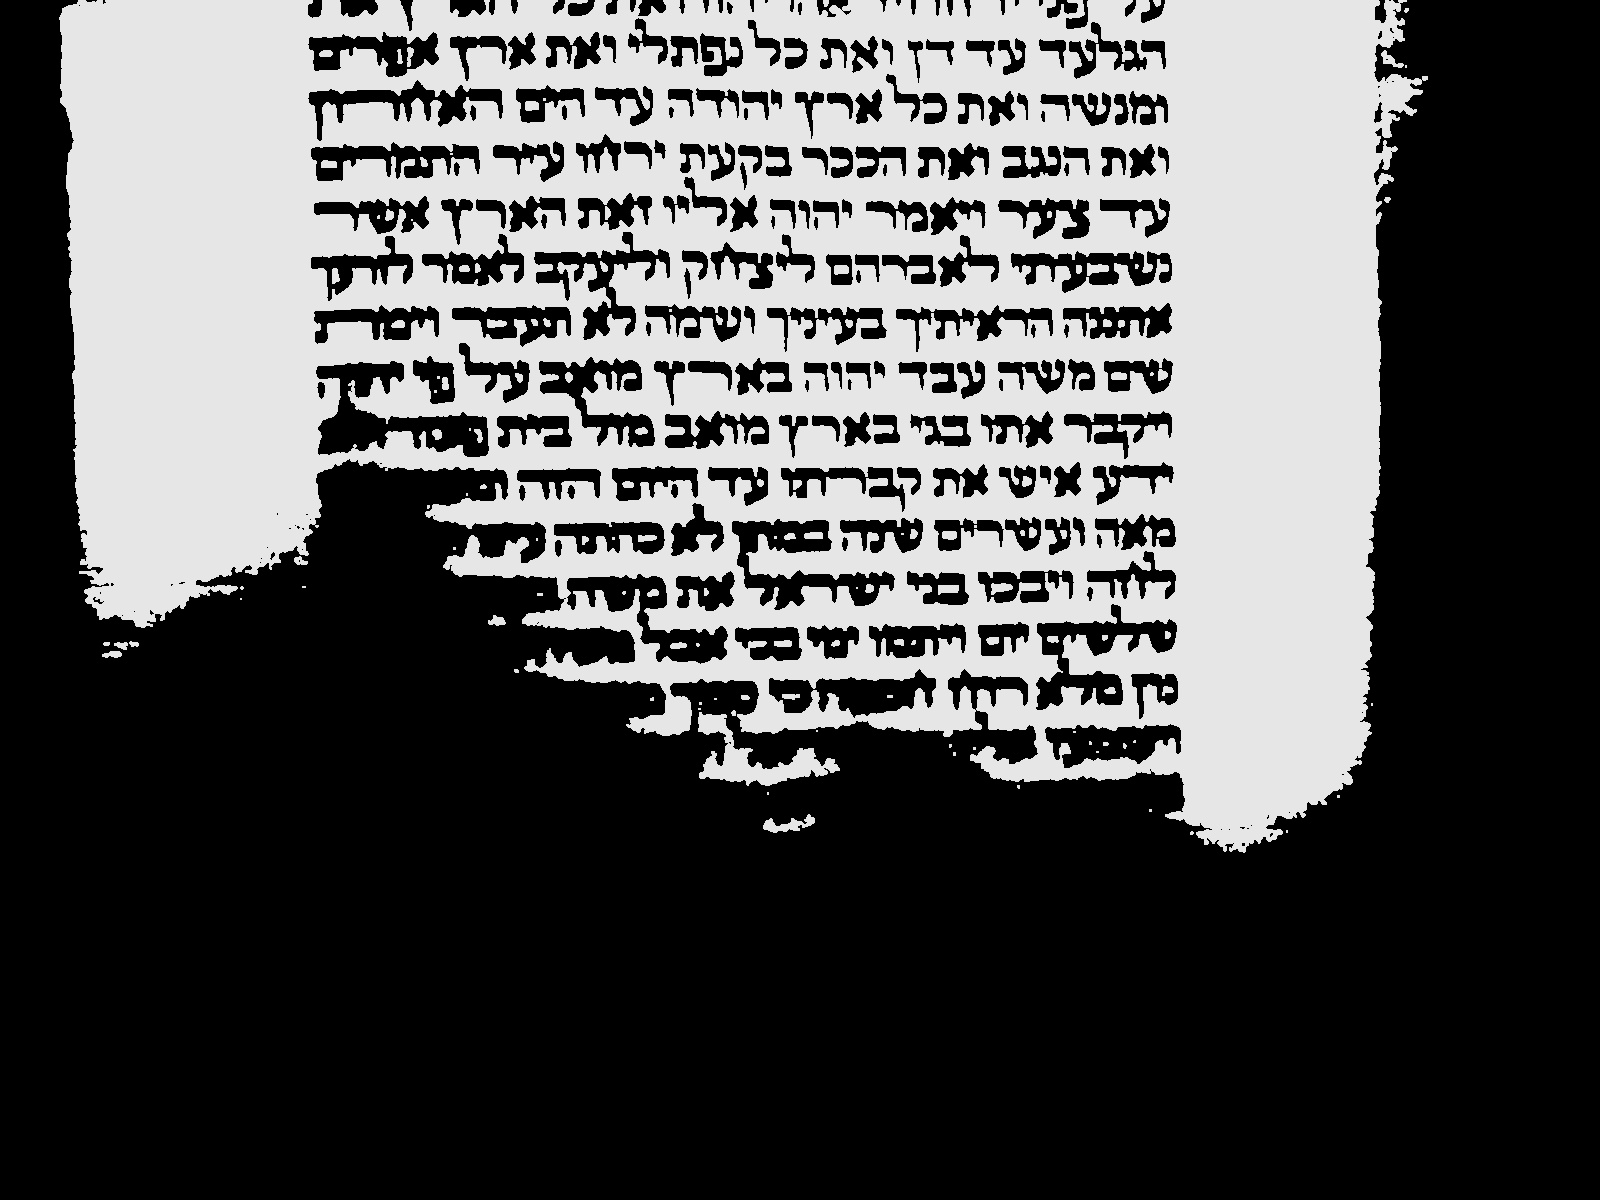 הגלעד עד דן ואת כל נפתלי ואת ארץ אפרים
ומנשה ואת כל ארץ יהודה עד הים האחרון
ואת הנגב ואת הככר בקעת ירחו עיר התמרים
עד צער ויאמר יהוה אליו זאת הארץ אשר
נשבעתי לאברהם ליצחק וליעקב לאמר לזרעך
אתננה הראיתיך בעיניך ושמה לא תעבר וימת
שם משה עבד יהוה בארץ מואב על פי יהוה
ויקבר אתו בגי בארץ מואב מול בית
ידע איש את קברתו עד היום הזה
מאה ועשרים שנה במתו לא כהתה עינו
לחה ויבכו בני ישראל את משה
שלשים יום ויתמו ימי בכי אבל משה
נון מלא רוח חכמה כי סמך
וישמעו אליו